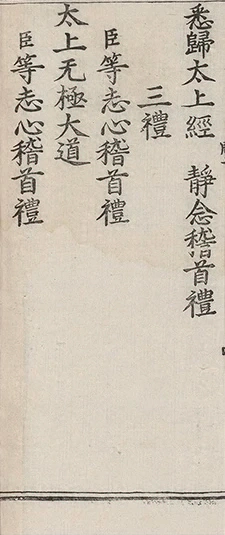 悉歸太上經　靜念稽首禮
三禮
臣等志心稽首禮
太上无極大道
臣等志心稽首禮